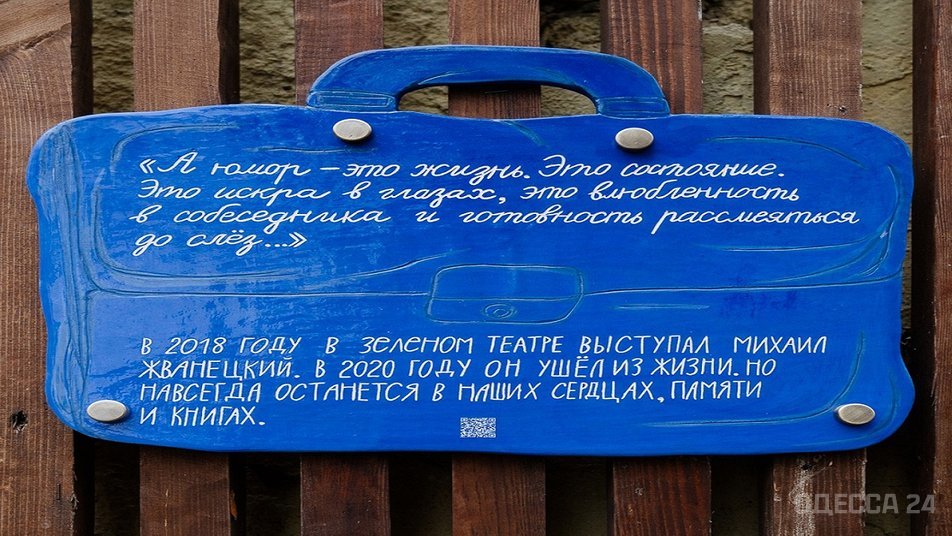 «А юмор – это жизнь. Это состояние.
Это искра в глазах, это влюбленность
в собеседника и готовность рассмеяться
до слёз...»
В 2018 ГОДУ В ЗЕЛЕНОМ ТЕАТРЕ ВЫСТУПАЛ МИХАИЛ
ЖВАНЕЦКИЙ. В 2020 ГОДУ ОН УШЁЛ ИЗ ЖИЗНИ. НО
НАВСЕГДА ОСТАНЕТСЯ В НАШИХ СЕРДЦАХ, ПАМЯТИ
И КНИГАХ.
ОДЕССА 24